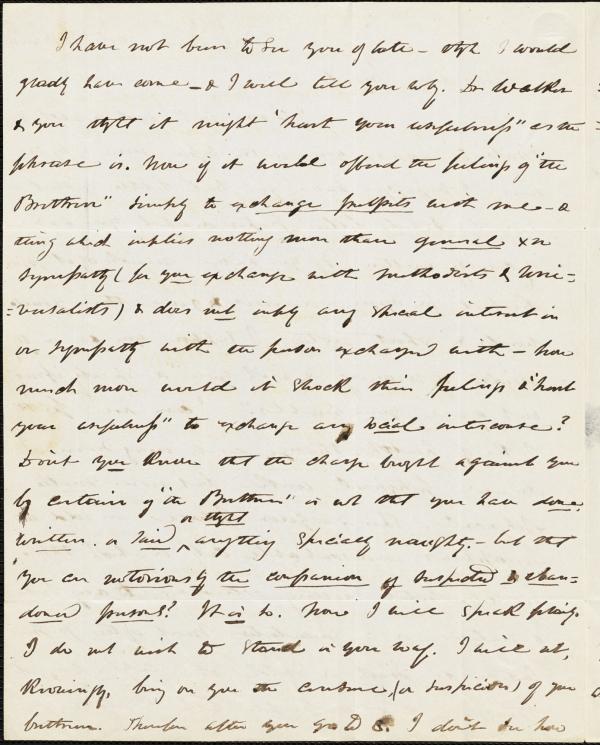 I have not been to see you of late – tho I would
gladly have come – & I will tell you why. Dr Walker
& you tho't it might "hurt your usefulness" as the
phrase is. Now if it would offend the feelings of "the
Brethren" simply to exchange pulpits with me – a
thing whch implies nothing more than general Xn
sympathy (for you exchange with Methodists & Uni=
=versalists) & does not imply any special interest in
or sympathy with the person exchanged with – how
much more would it shock their feelings & "hurt
your usefulness" to exchange any social intercourse?
Don't you know tht the charge brought against you
by certain of "the Brethren" is not tht you have done,
or thght
written or said anything specially naughty. – but tht
you are notoriously the companion of suspected & aban=
doned persons? It is so. Now I will speak plainly.
I do not wish to stand in your way. I will not,
knowingly, bring on you the censure, (or suspicion) of your
brethren. Therefore after you go to S. I don't see how